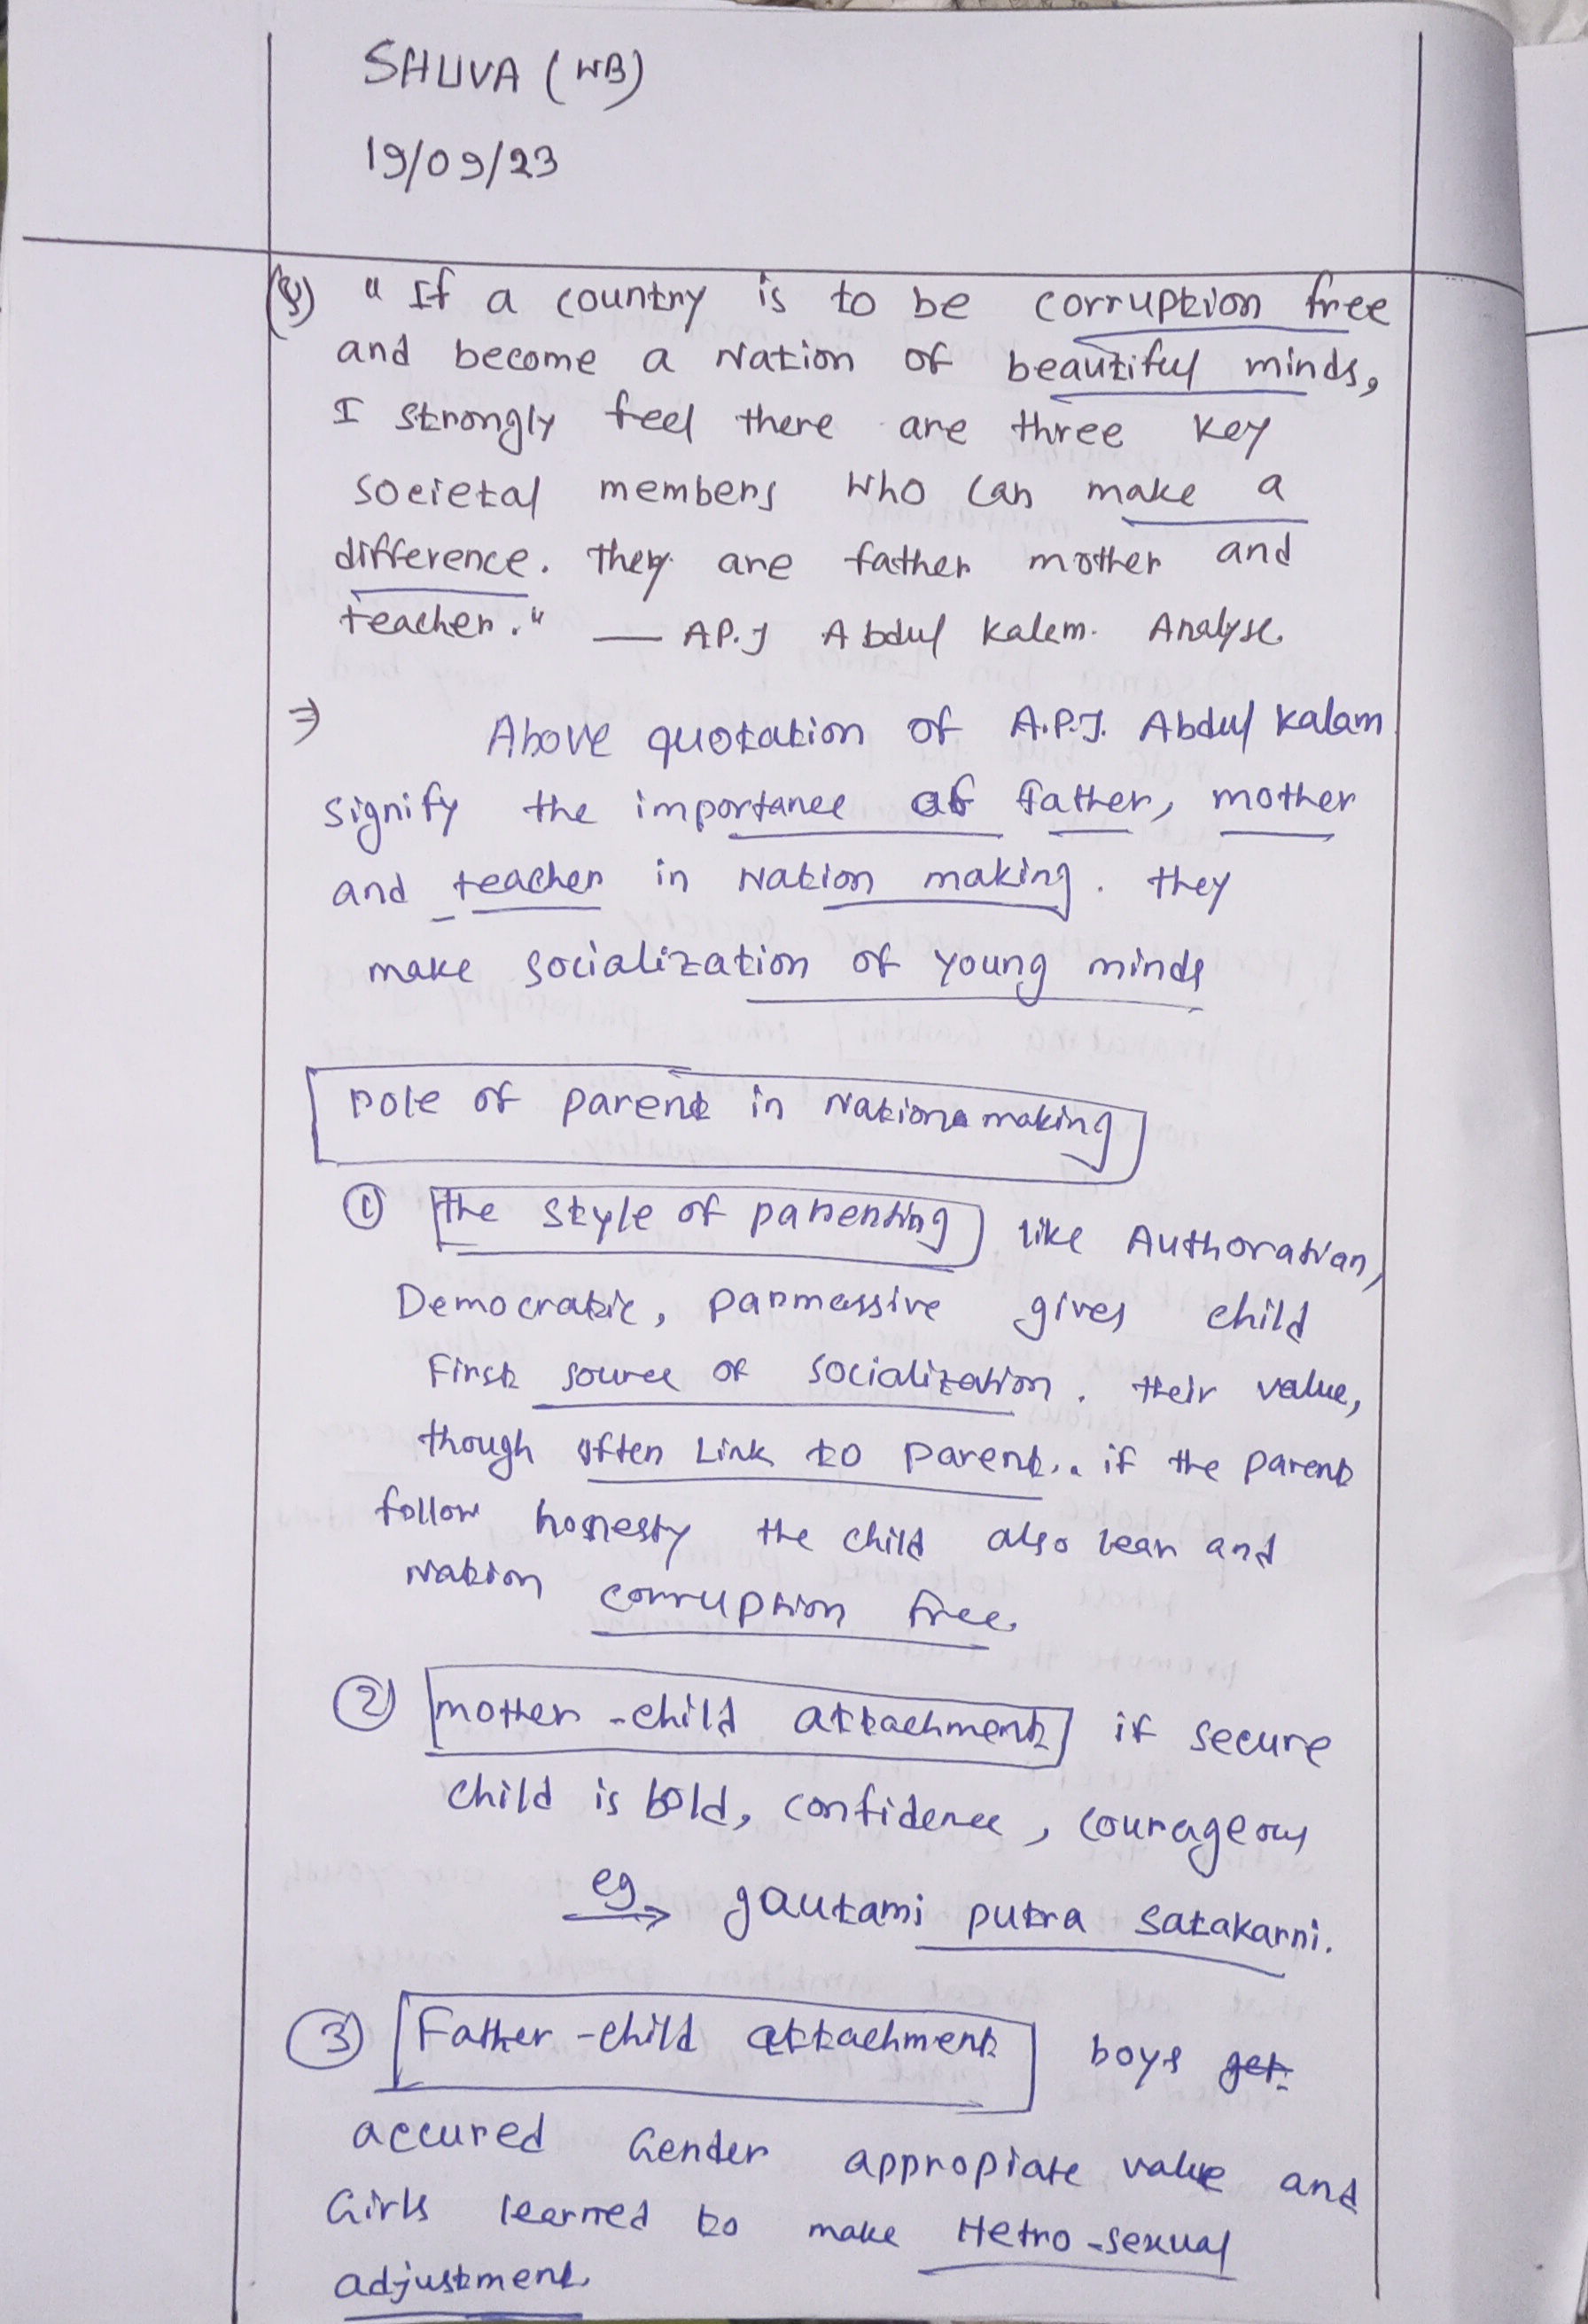 SHUVA (WB)
19/09/23
(Q) " If a country is to be corruption free
and become a Nation of beautiful minds,
I strongly feel there are three key
societal members who can make a
difference. They are father mother and
teacher." — AP.J Abdul Kalem. Analyse.
⇒ Above quotation of A.P.J. Abdul Kalam
signify the importance of father, mother
and teacher in Nation making. they
make socialization of young minds
Role of parent in Nation making
① the style of parenting like Authoratian,
Democratic, parmassive gives child
First source of socialization. their value,
though often Link to parent.. if the parent
follow honesty the child also lear and
Nation corruption free.
② mother-child attachment if secure
child is bold, confidence, courageous
eg → gautami putra Satakarni.
③ Father-child attachment boys get
accured Gender appropiate value and
Girls learned to make Hetro-sexual
adjustment.